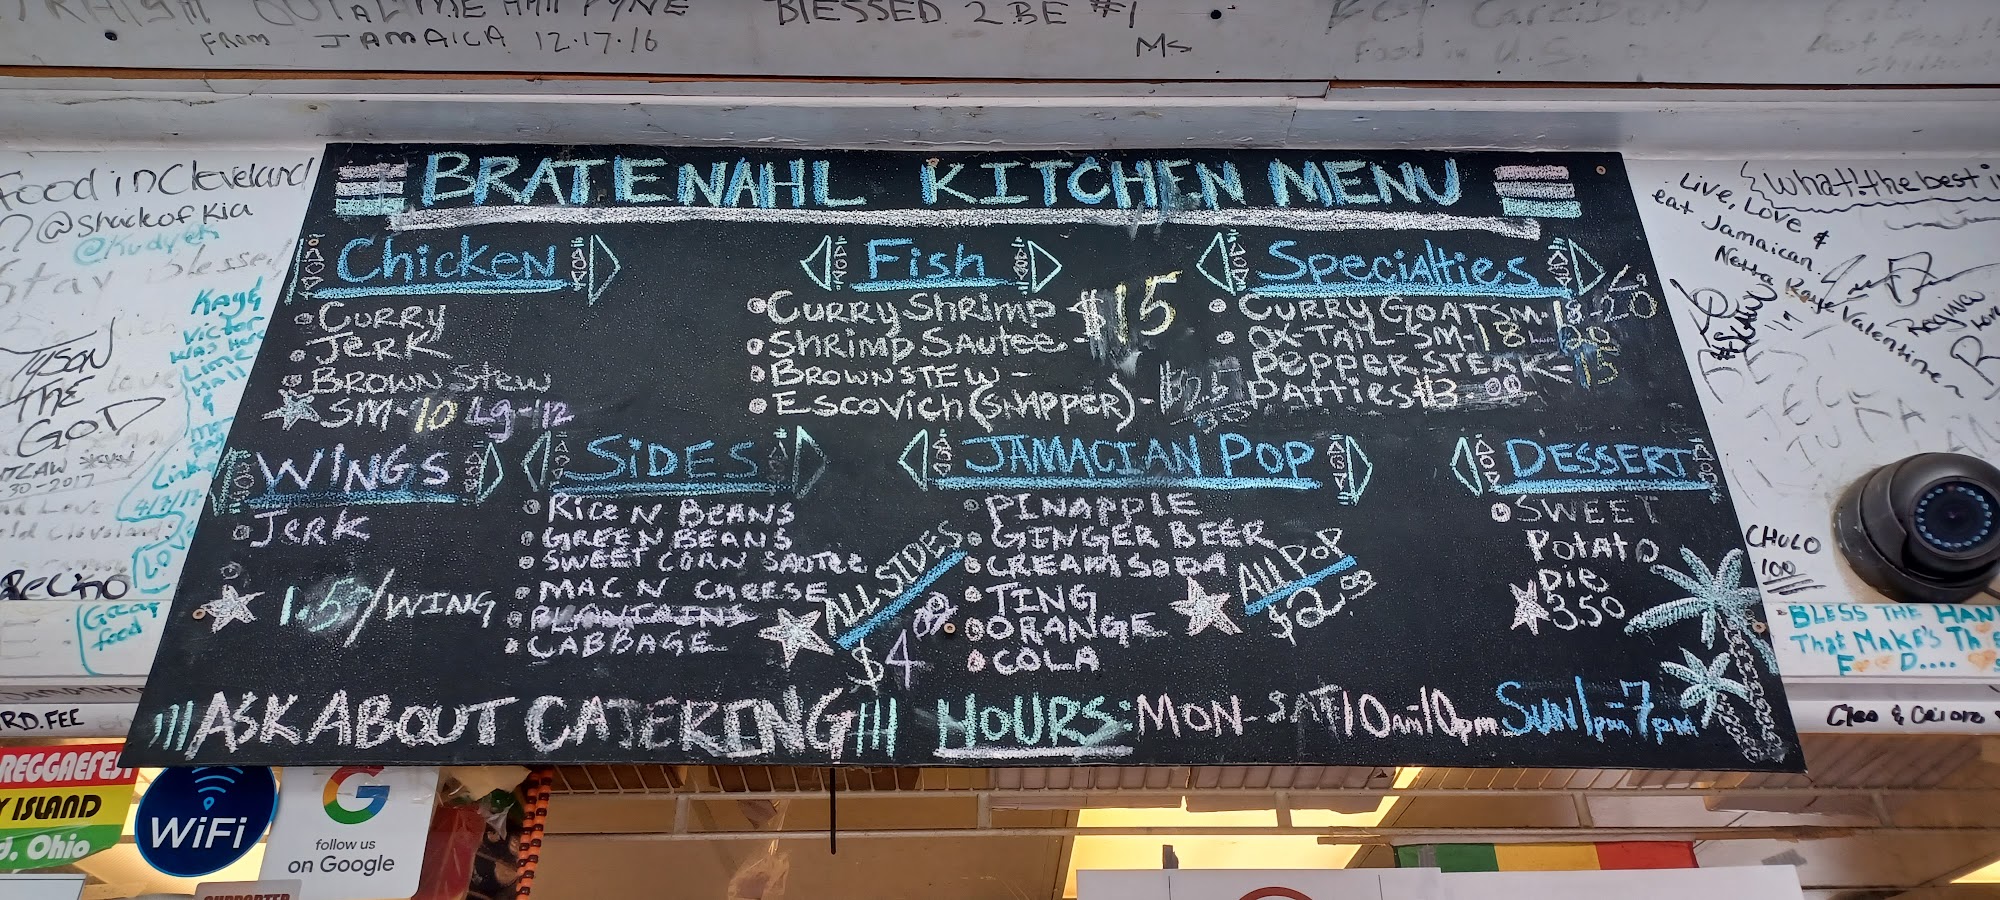 BLESSED 2 BE #1
FROM JAMAICA 12.17.16
Ms
Food in U.S.
Food in Cleveland
@ShackofKia
@Kudyek
Stay blessed
Kaye
Victor
WAS Here
Lime
Hall
&
TYSON
THE
GOD
4/3/17
30-2017
LOVE
Great
food
BRATENAHL KITCHEN MENU
Chicken
CURRY
JERK
BROWN STEW
SM-10 Lg-12
Fish
CURRY Shrimp
Shrimp SAUTEE - $15
BROWN STEW -
Escovich (SNAPPER) -
Specialties
Lg
CURRY GOAT SM-18-20
OX-TAIL-SM-18 20
PEPPER STEAK-15
PATTIES $3.00
WINGS
Jerk
1.50/WING
SIDES
Rice N BEANS
GREEN BEANS
SWEET CORN SAUTEE
MAC N CHEESE
PLANTAINS
CABBAGE
ALL SIDES
$4.00
JAMACIAN POP
PINAPPLE
GINGER BEER
CREAM SODA
TING
ORANGE
COLA
All POP
$2.00
DESSERT
SWEET
POTATO
PIE
3.50
ASK ABOUT CATERING
HOURS: MON-SAT 10am-10pm SUN 1pm-7pm
What! the best
Live, Love &
eat Jamaican.
Netta Raye Valentine
Regina
CHULO
100
BLESS THE HAN
That MAKE'S Th
F D....
RD.FEE
REGGAEFEST
Y ISLAND
d, Ohio
WiFi
follow us
on Google
SUPPORTER